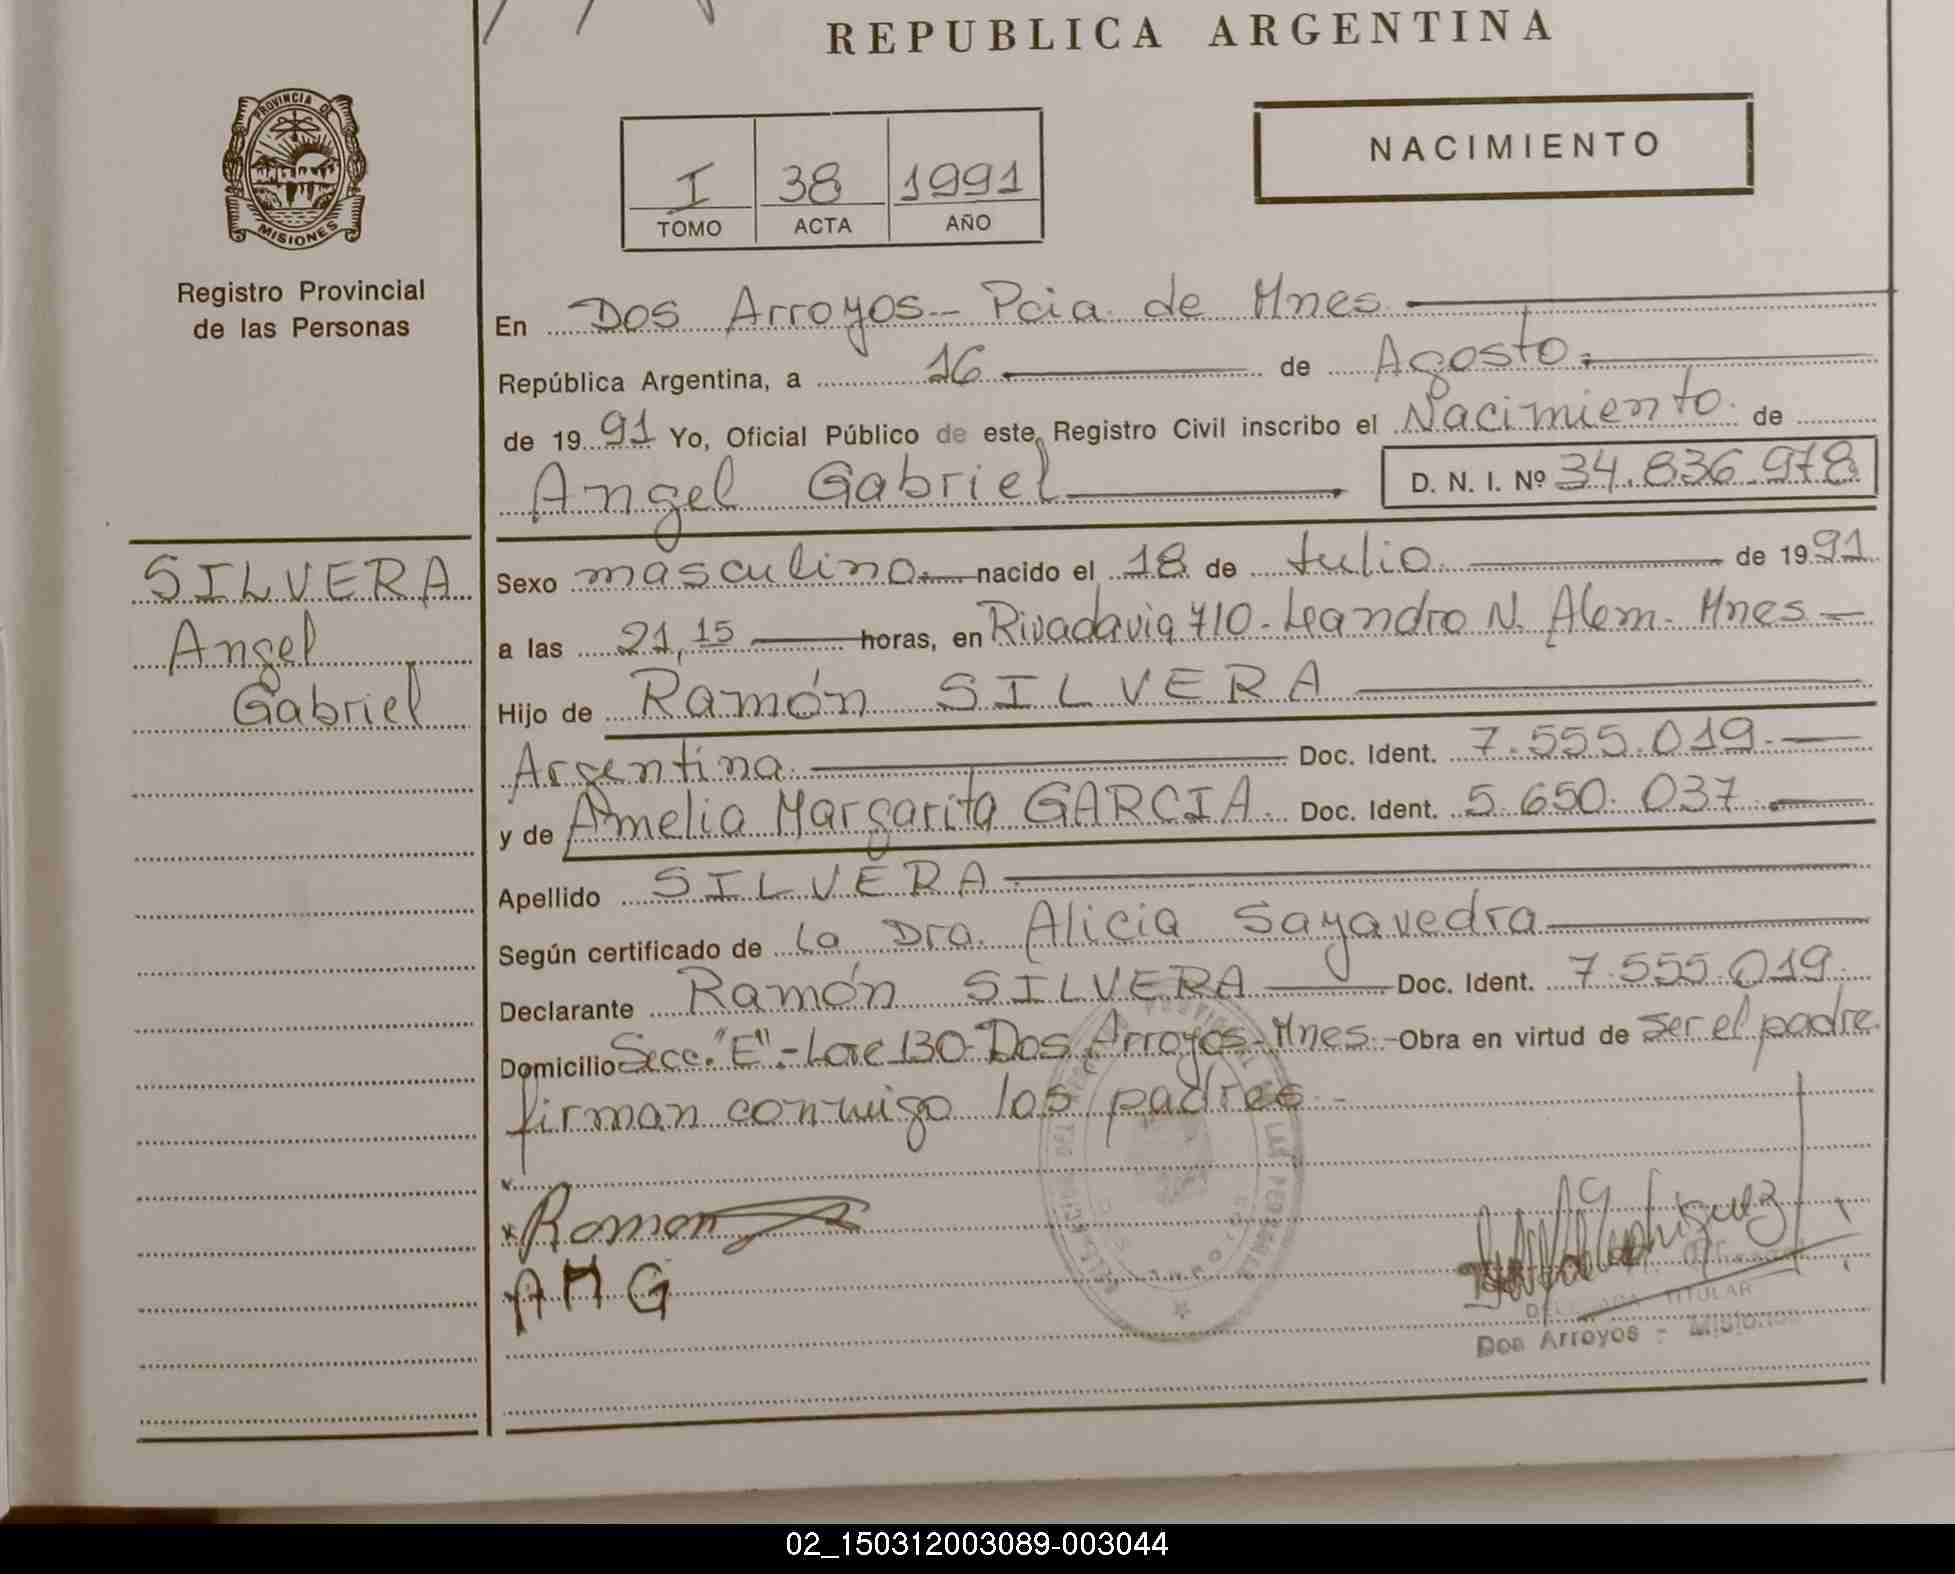 REPUBLICA ARGENTINA
PROVINCIA DE
MISIONES
Registro Provincial
de las Personas
I 38 1991
TOMO ACTA AÑO
NACIMIENTO
En Dos Arroyos - Pcia. de Mnes.
República Argentina, a 16 de Agosto.
de 1991 Yo, Oficial Público de este Registro Civil inscribo el Nacimiento. de
Angel Gabriel D. N. I. Nº 34.836.978
SILVERA
Angel
Gabriel
Sexo masculino. nacido el 18 de Julio. de 1991
a las 21,15 horas, en Rivadavia 710 - Leandro N. Alem - Mnes -
Hijo de Ramón SILVERA
Argentina. Doc. Ident. 7.555.019.
y de Amelia Margarita GARCIA. Doc. Ident. 5.650.037.
Apellido SILVERA
Según certificado de La Dra. Alicia Sayavedra
Declarante Ramón SILVERA Doc. Ident. 7.555.019.
Domicilio Secc. "E" - Lote 130 - Dos Arroyos - Mnes. - Obra en virtud de ser el padre
firman conmigo los padres. -
x Ramon
x AMG
TITULAR
Dos Arroyos - Misiones
02_150312003089-003044